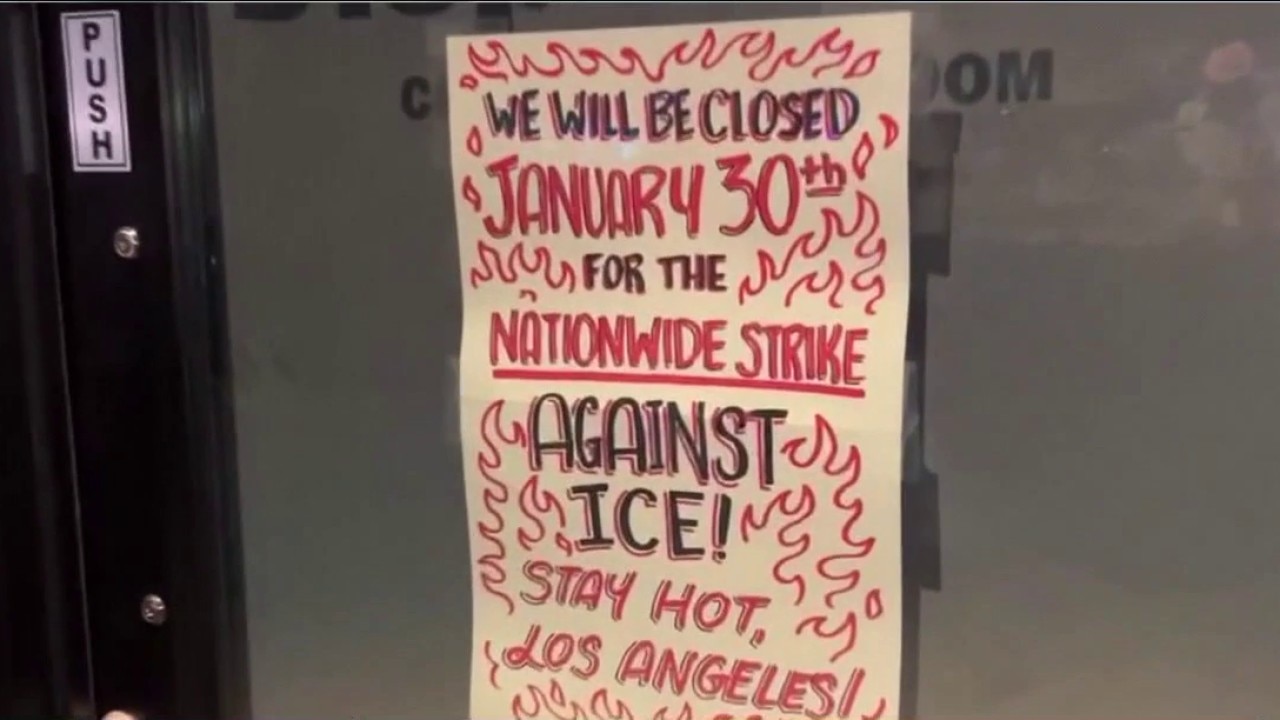 PUSH
OOM
WE WILL BE CLOSED
JANUARY 30th
FOR THE
NATIONWIDE STRIKE
AGAINST
ICE!
STAY HOT,
LOS ANGELES!